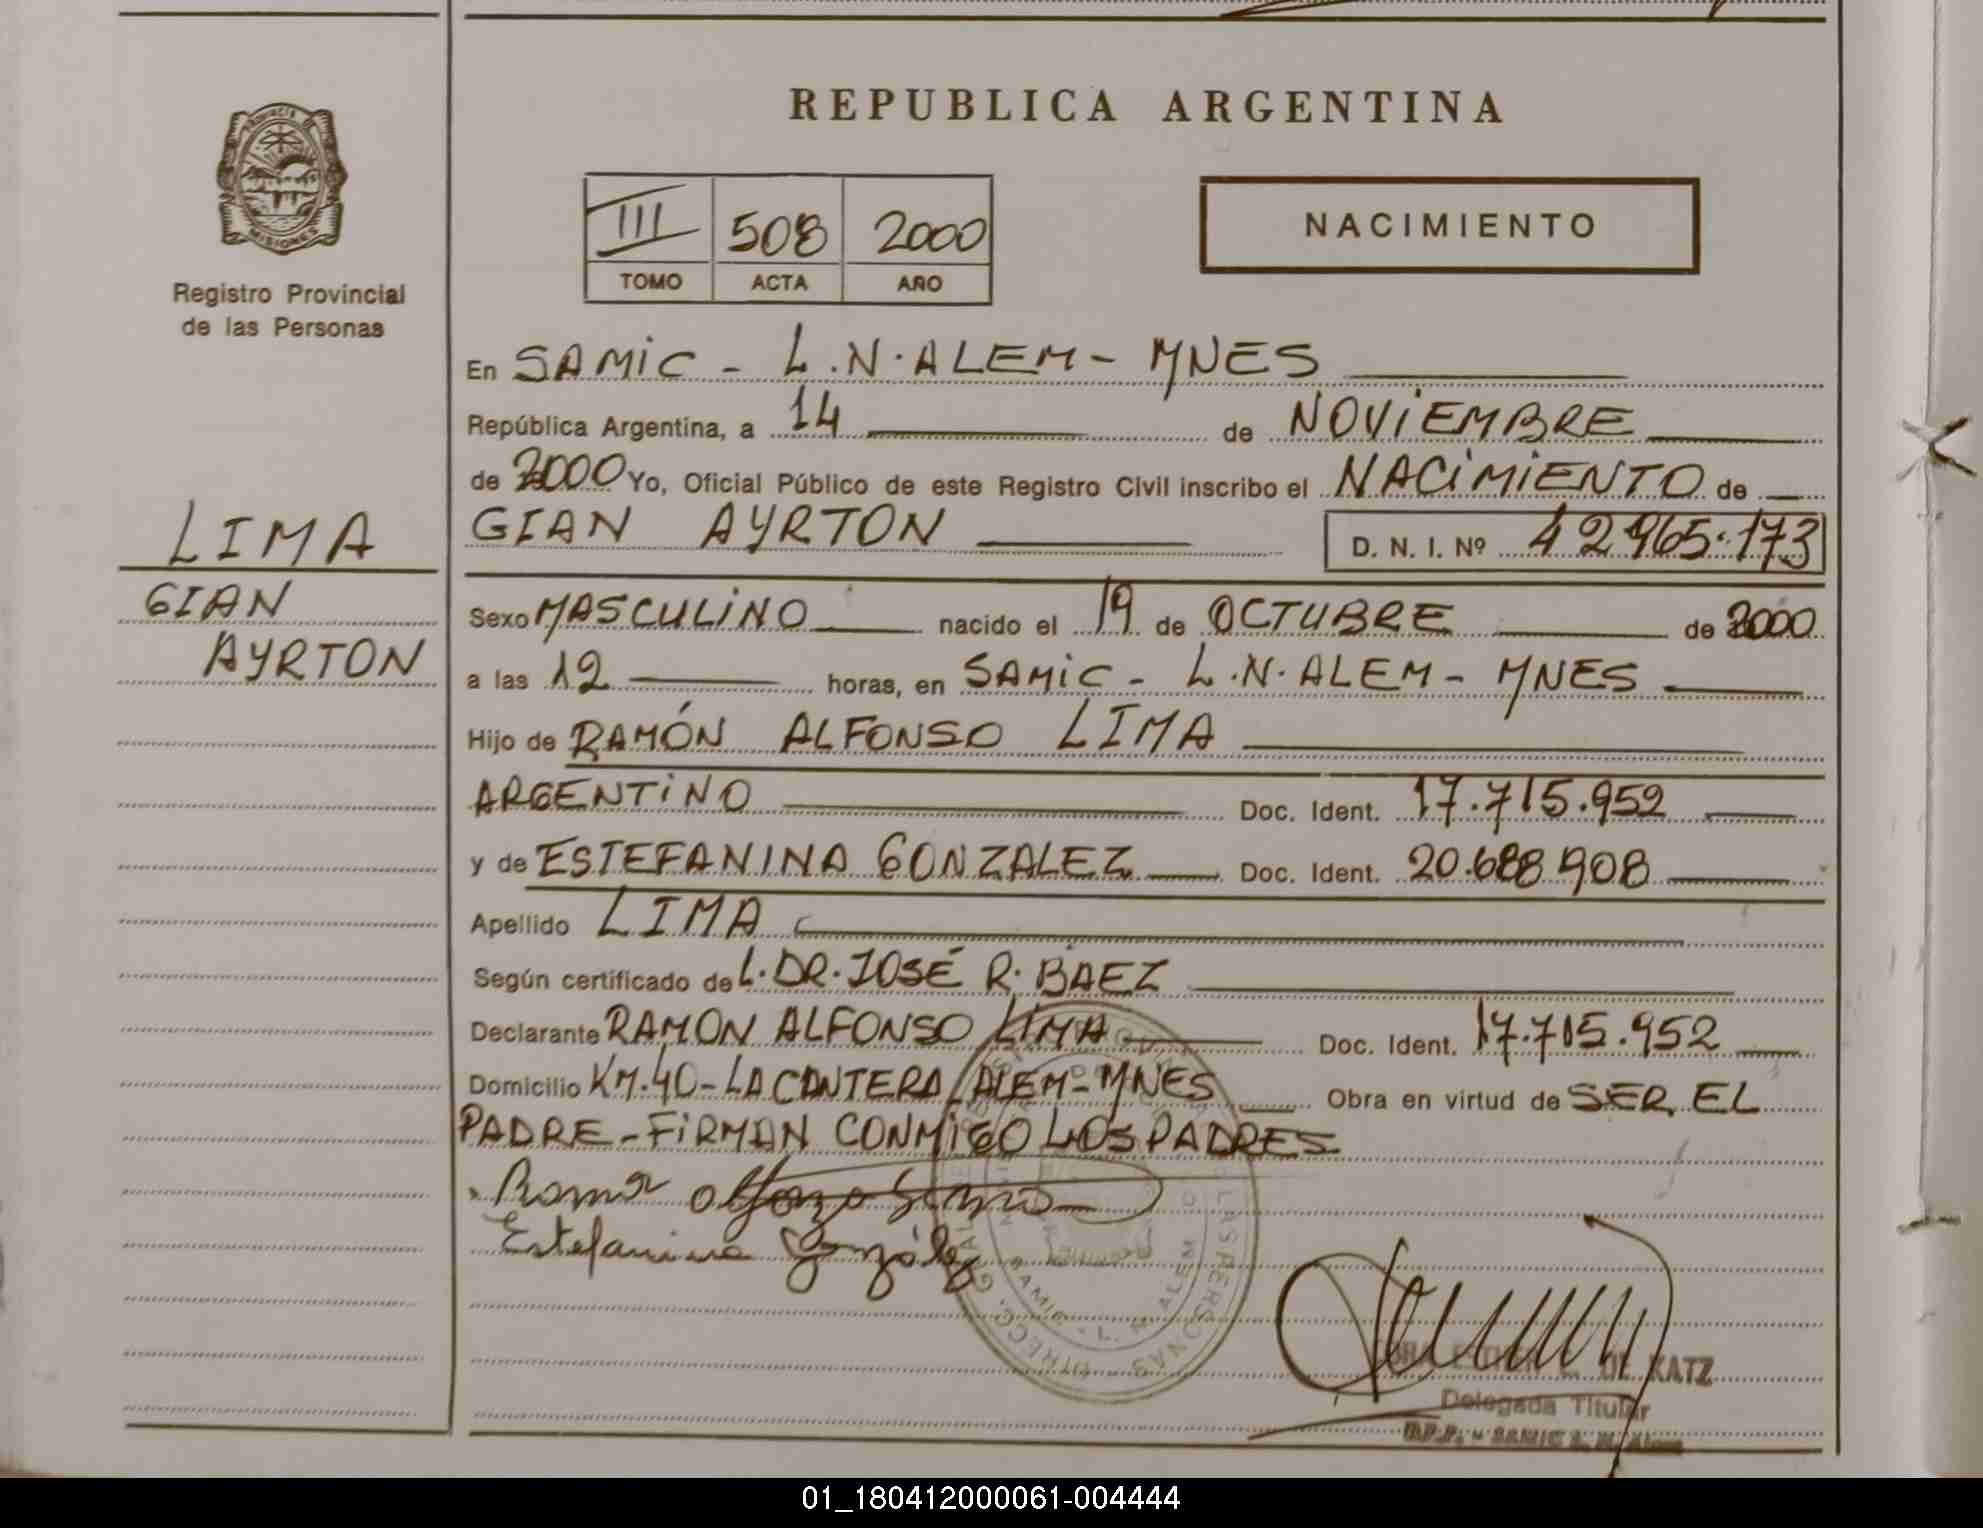 REPUBLICA ARGENTINA
PROVINCIA DE MISIONES
Registro Provincial
de las Personas
III 508 2000
TOMO ACTA AÑO
NACIMIENTO
En SAMIC - L.N.ALEM - MNES
República Argentina, a 14 de NOVIEMBRE
de 2000 Yo, Oficial Público de este Registro Civil inscribo el NACIMIENTO de
GIAN AYRTON D. N. I. Nº 42965.173
LIMA
GIAN
AYRTON
Sexo MASCULINO nacido el 19 de OCTUBRE de 2000
a las 12 horas, en SAMIC - L.N.ALEM - MNES
Hijo de RAMÓN ALFONSO LIMA
ARGENTINO Doc. Ident. 17.715.952
y de ESTEFANINA GONZALEZ Doc. Ident. 20.688908
Apellido LIMA
Según certificado de L.DR.JOSÉ R. BAEZ
Declarante RAMON ALFONSO LIMA Doc. Ident. 17.715.952
Domicilio KM.40-LA CANTERA ALEM-MNES Obra en virtud de SER EL
PADRE-FIRMAN CONMIGO LOS PADRES
Ramon Alfonzo Lima
Estefanina González
SAMIC - L. N. ALEM
DE KATZ
Delegada Titular
01_180412000061-004444